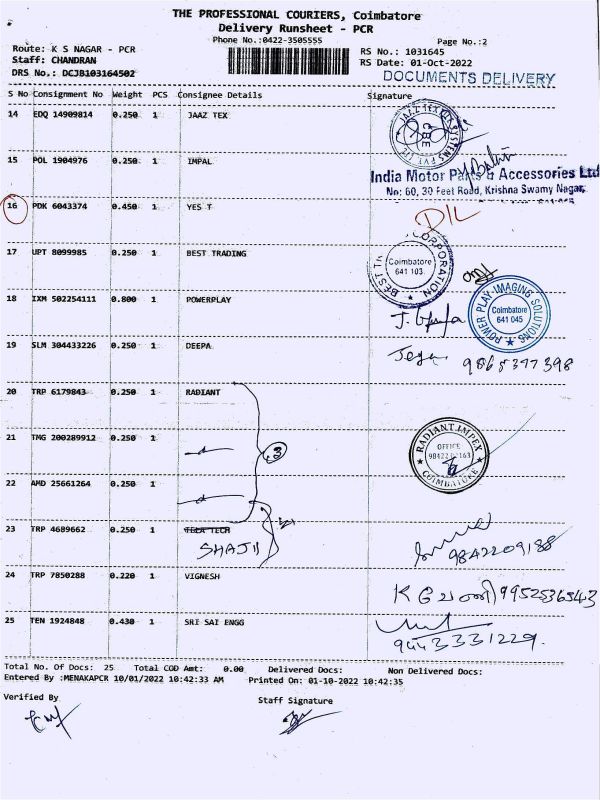 THE PROFESSIONAL COURIERS, Coimbatore
Delivery Runsheet - PCR
Phone No.:0422-3505555
Page No.:2
Route: K S NAGAR - PCR
RS No.: 1031645
Staff: CHANDRAN
RS Date: 01-Oct-2022
DRS No.: DCJB103164502
DOCUMENTS DELIVERY
S No Consignment No Weight PCS Consignee Details Signature
14 EDQ 14909814 0.250 1 JAAZ TEX
JAAZ TEX SYSTEMS PVT LTD
CBE
15 POL 1904976 0.250 1 IMPAL
India Motor Parts & Accessories Ltd
No: 60, 30 Feet Road, Krishna Swamy Nagar,
16 PDK 6043374 0.450 1 YES T
D/L
17 UPT 8099985 0.250 1 BEST TRADING
BEST CORPORATION
Coimbatore
641 103
18 IXM 502254111 0.800 1 POWERPLAY
POWER PLAY IMAGING SOLUTIONS
Coimbatore
641 045
19 SLM 304433226 0.250 1 DEEPA
Jeya 9865377398
20 TRP 6179843 0.250 1 RADIANT
21 TMG 200289912 0.250 1
3
RADIANT IMPEX
OFFICE
COIMBATORE
22 AMD 25661264 0.250 1
23 TRP 4689662 0.250 1 TECA TECH
SHAJI
9842209188
24 TRP 7850288 0.220 1 VIGNESH
9952536543
25 TEN 1924848 0.430 1 SRI SAI ENGG
9443331229
Total No. Of Docs: 25 Total COD Amt: 0.00 Delivered Docs: Non Delivered Docs:
Entered By :MENAKAPCR 10/01/2022 10:42:33 AM Printed On: 01-10-2022 10:42:35
Verified By
Staff Signature